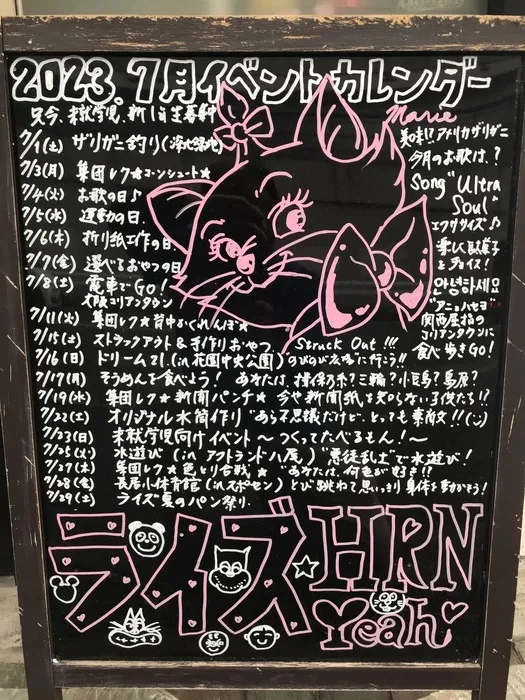 2023.7月イベントカレンダー
只今、未就学児、新1年生募集中
Marie
7/1(土) ザリガニ釣り(深北緑地)
美味!?アメリカザリガニ
7/3(月) 集団レク☆コーンシュート☆
今月のお歌は.?
Song "Ultra Soul"
7/4(火) お歌の日♪
7/5(水) 運動の日.
エクササイズ♪
7/6(木) 折り紙工作の日
7/7(金) 選べるおやつの日
楽しく駄菓子をチョイス!
7/8(土) 電車でGO!
大阪コリアンタウン
안녕하세요
"アニョハセヨ"
関西屈指のコリアンタウンに
食べ歩きGO!
7/11(火) 集団レク★背中かくれんぼ★
7/15(土) ストラックアウト&手作りおやつ Struck Out!!!
7/16(日) ドリーム21.(in 花園中央公園) のびのび広場に行こう!!
7/17(月) そうめんを食べよう! あなたは、揖保乃糸?三輪?小豆島?島原?
7/19(水) 集団レク★新聞パンチ★ 今や新聞紙を知らない子供たち!?
7/22(土) オリジナル水筒作り "あら不思議だけど、とっても素敵!!(:)
7/23(日) 未就学児向けイベント〜つくってたべるもん!〜
7/25(火) 水遊び (in アクトランド八尾)
で水遊び!
7/27(木) 集団レク★色とり合戦★ "あなたは、何色が好き!?
7/28(金) 長居小体育館 (inスポセン) とび跳ねて思いっきり身体を動かそう!
7/29(土) ライズ夏のパン祭り.
ライズ HRN
Yeah